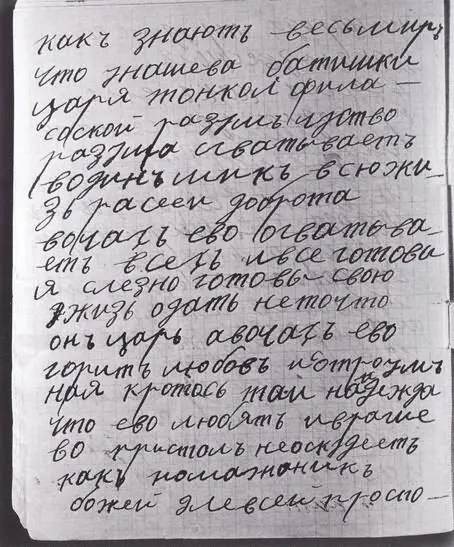 какъ знаютъ весьмиръ
что унашева батишки
царя тонкой фила-
совской разумъ чуство
разума охватываетъ
водинъ мигъ всюжи-
зъ расеи доброта
вочахъ ево охватыва-
етъ всехъ ивсе готовы
я слезно готовы свою
жизъ одать неточто
онъ царь авочахъ ево
горитъ любовъ иотроумъ
ная кротось таи надежда
что ево любятъ ивраги
во пристолъ неоскудеетъ
какъ помазаникъ
божей